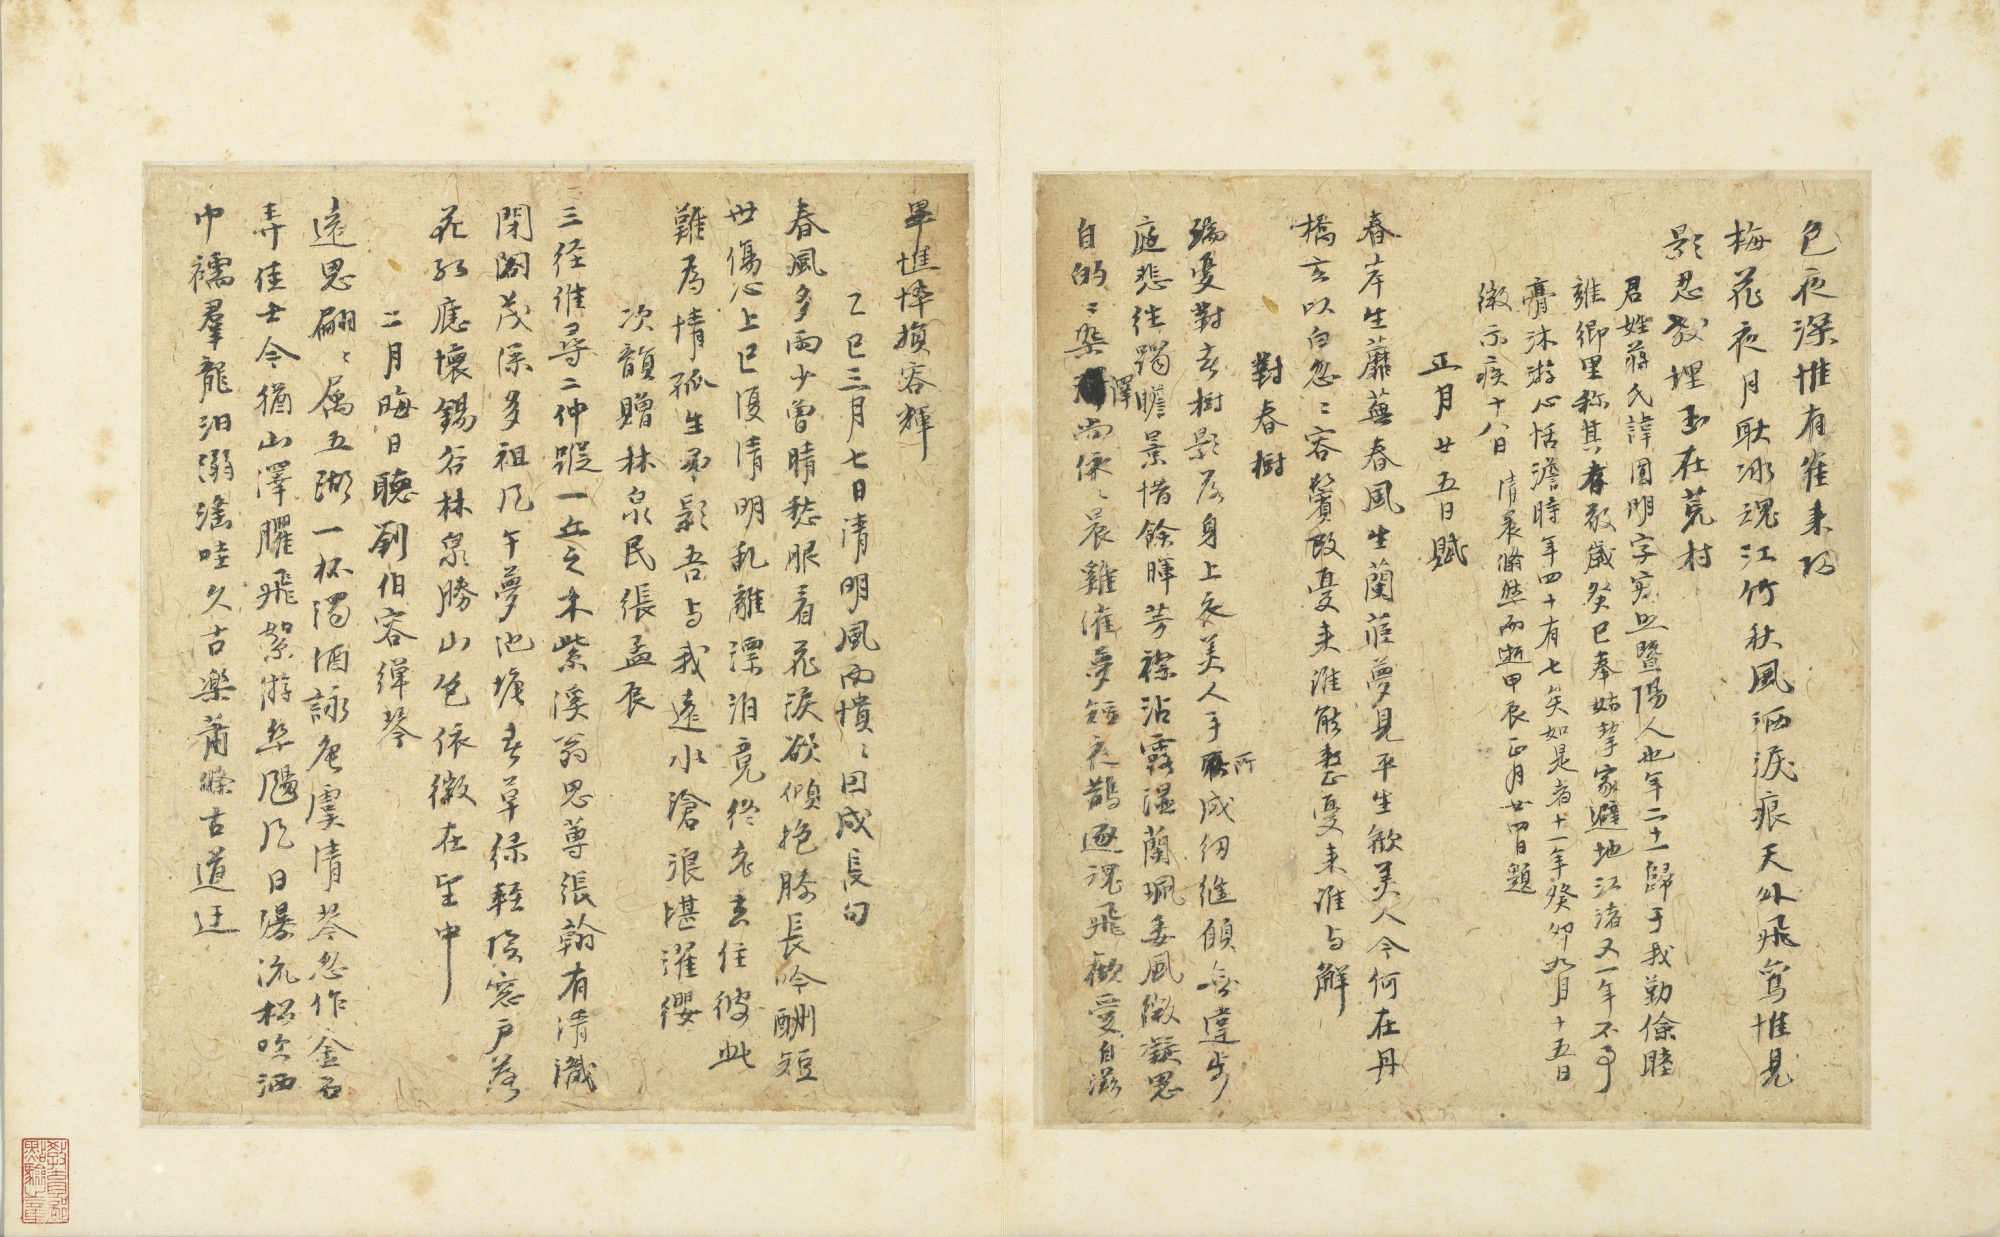 色夜深惟有雀來踏
梅花夜月耿冰魂江竹秋風洒淚痕天外飛鸞惟見
影忍教埋玉在荒村
君姓蔣氏諱圓明字寂照暨陽人也年二十一歸于我勤儉睦
雍鄉里称其孝敬歲癸巳奉姑挈家避地江渚又一年不事
膏沐游心恬澹時年四十有七矣如是者十一年癸卯九月十五日
微示疾十八日清晨翛然而逝甲辰正月廿四日題
正月廿五日賦
春岸生蘼蕪春風生蘭茝夢見平生歡美人今何在丹
橋玄以白忽〻容鬢改憂来誰能整憂来誰与解
對春樹
端憂對春樹影落身上衣美人手所成紉縫頎無違步
庭悲往躅瞻景惜餘暉芳襟沾露湿蘭珮委風微凝思
自的〻染澤尚依〻晨雞催夢短夜鵲逐魂飛㱃愛自滋
畢憔悴損容輝
乙巳三月七日清明風雨憒〻因成長句
春風多雨少曾晴愁眼看花淚欲傾抱膝長吟酬短
世傷心上巳復清明乱離漂泊竟終老去住彼此
難為情孤生弔影吾与我遠水滄浪堪濯纓
次韻贈林泉民張孟辰
三径誰尋二仲蹤一丘之木紫溪翁思蓴張翰有清識
閉閣茂深多祖風午夢池塘春草綠輕陰窓戶落
花紅應懷錫谷林泉勝山色依微在望中
二月晦日聽劉伯容彈琴
遠思翩〻属五湖一杯濁酒詠唐虞清琴忽作金石
弄佳士今猶山澤臞飛絮游絲颺风日瀑流松吹洒
巾襦羣龍汨溺滛哇久古樂蕭條古道迂